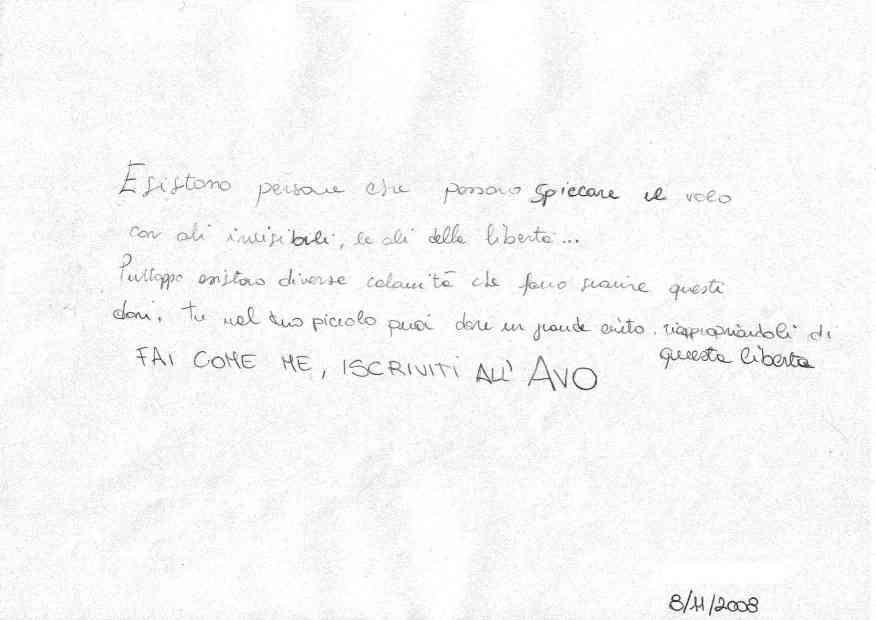 Esistono persone che possono spiccare il volo
con ali invisibili, le ali della libertà...
Purtroppo esistono diverse calamità che fanno svanire questi
doni. Tu nel tuo piccolo puoi dare un grande aiuto. riappropriandoli di
questa libertà
FAI COME ME, ISCRIVITI ALL' AVO
8/11/2008